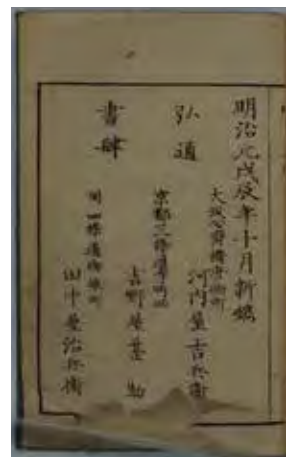 明治元戊辰年十月新鐫
弘通
書肆
大坂心斎橋
河内屋吉兵衛
京都三条通
吉野屋甚助
同
田中屋治兵衛